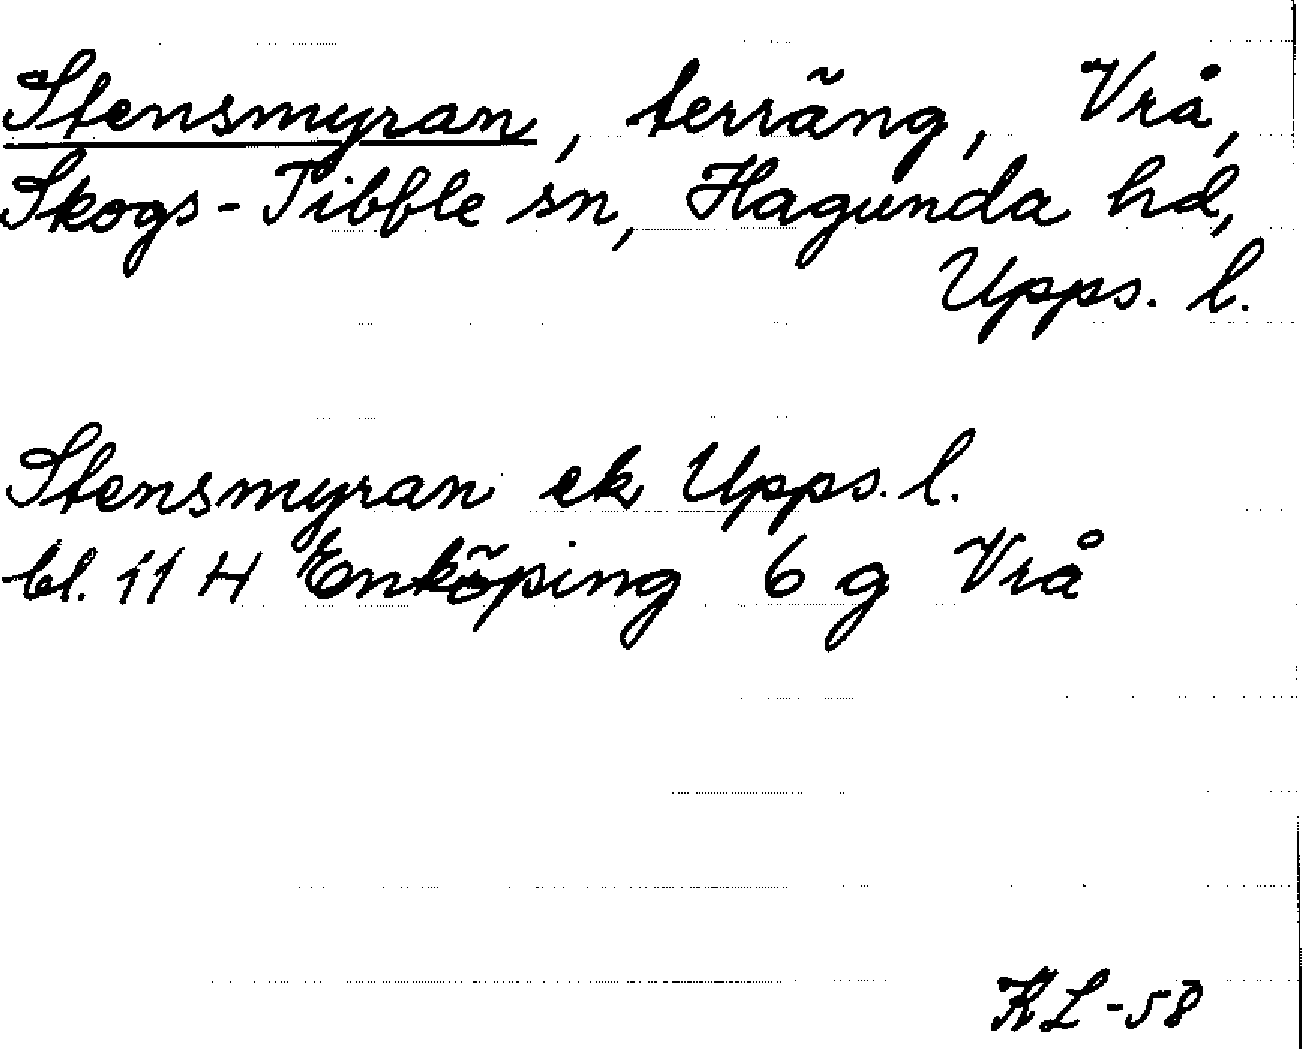 Stensmyran, terräng, Vrå,
Skogs-Tibble sn, Hagunda hd,
Upps. l.
Stensmyran ek Upps. l.
bl. 11 H Enköping 6 g Vrå
KL-58